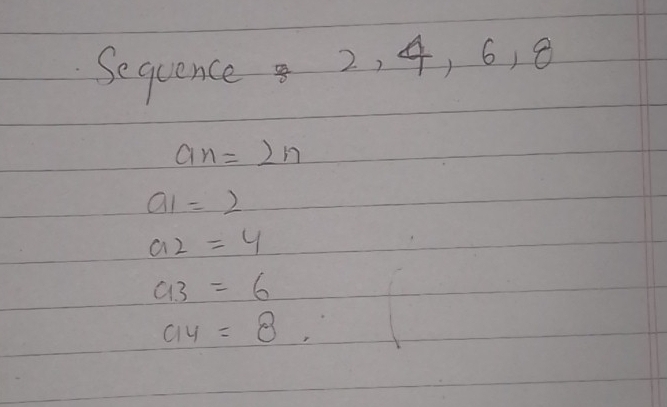 Sequence : 2, 4, 6, 8
an = 2n
a1 = 2
a2 = 4
a3 = 6
a4 = 8.